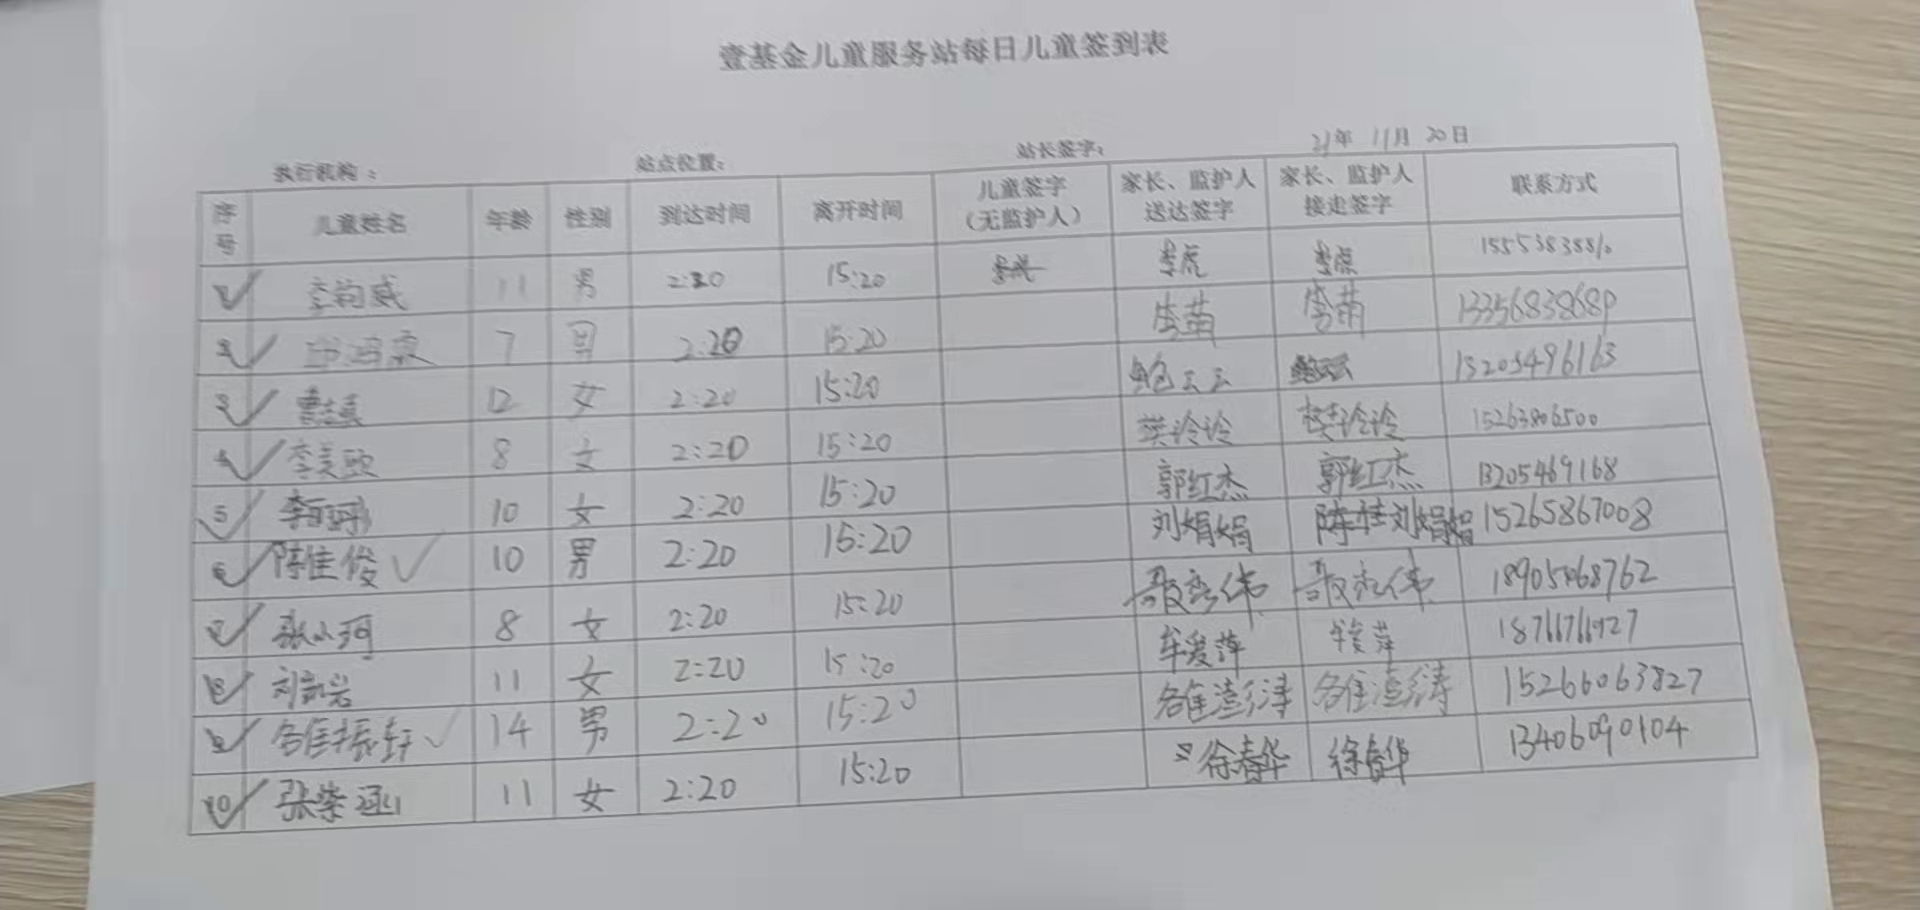 壹基金儿童服务站每日儿童签到表
执行机构： 站点位置： 站长签字： 21年 11月 20日
序号 儿童姓名 年龄 性别 到达时间 离开时间 儿童签字（无监护人） 家长、监护人送达签字 家长、监护人接走签字 联系方式
1 李钧威 11 男 2:20 15:20 李虎 李虎
2 7 男 2:20 15:20 李萌 李萌 13356838689
3 12 女 2:20 15:20 鲍云云 鲍云云 13205496163
4 李美欧 8 女 2:20 15:20 樊玲玲 樊玲玲 15263806500
5 10 女 2:20 15:20 郭红杰 郭红杰 13205469168
6 陈佳俊 10 男 2:20 15:20 刘娟娟 刘娟娟 15265867008
7 张小珂 8 女 2:20 15:20
8 11 女 2:20 15:20 牟爱萍 牟爱萍 18766711927
9 14 男 2:20 15:20 15266063827
10 张紫涵 11 女 2:20 15:20 徐春华 徐春华 13406090104